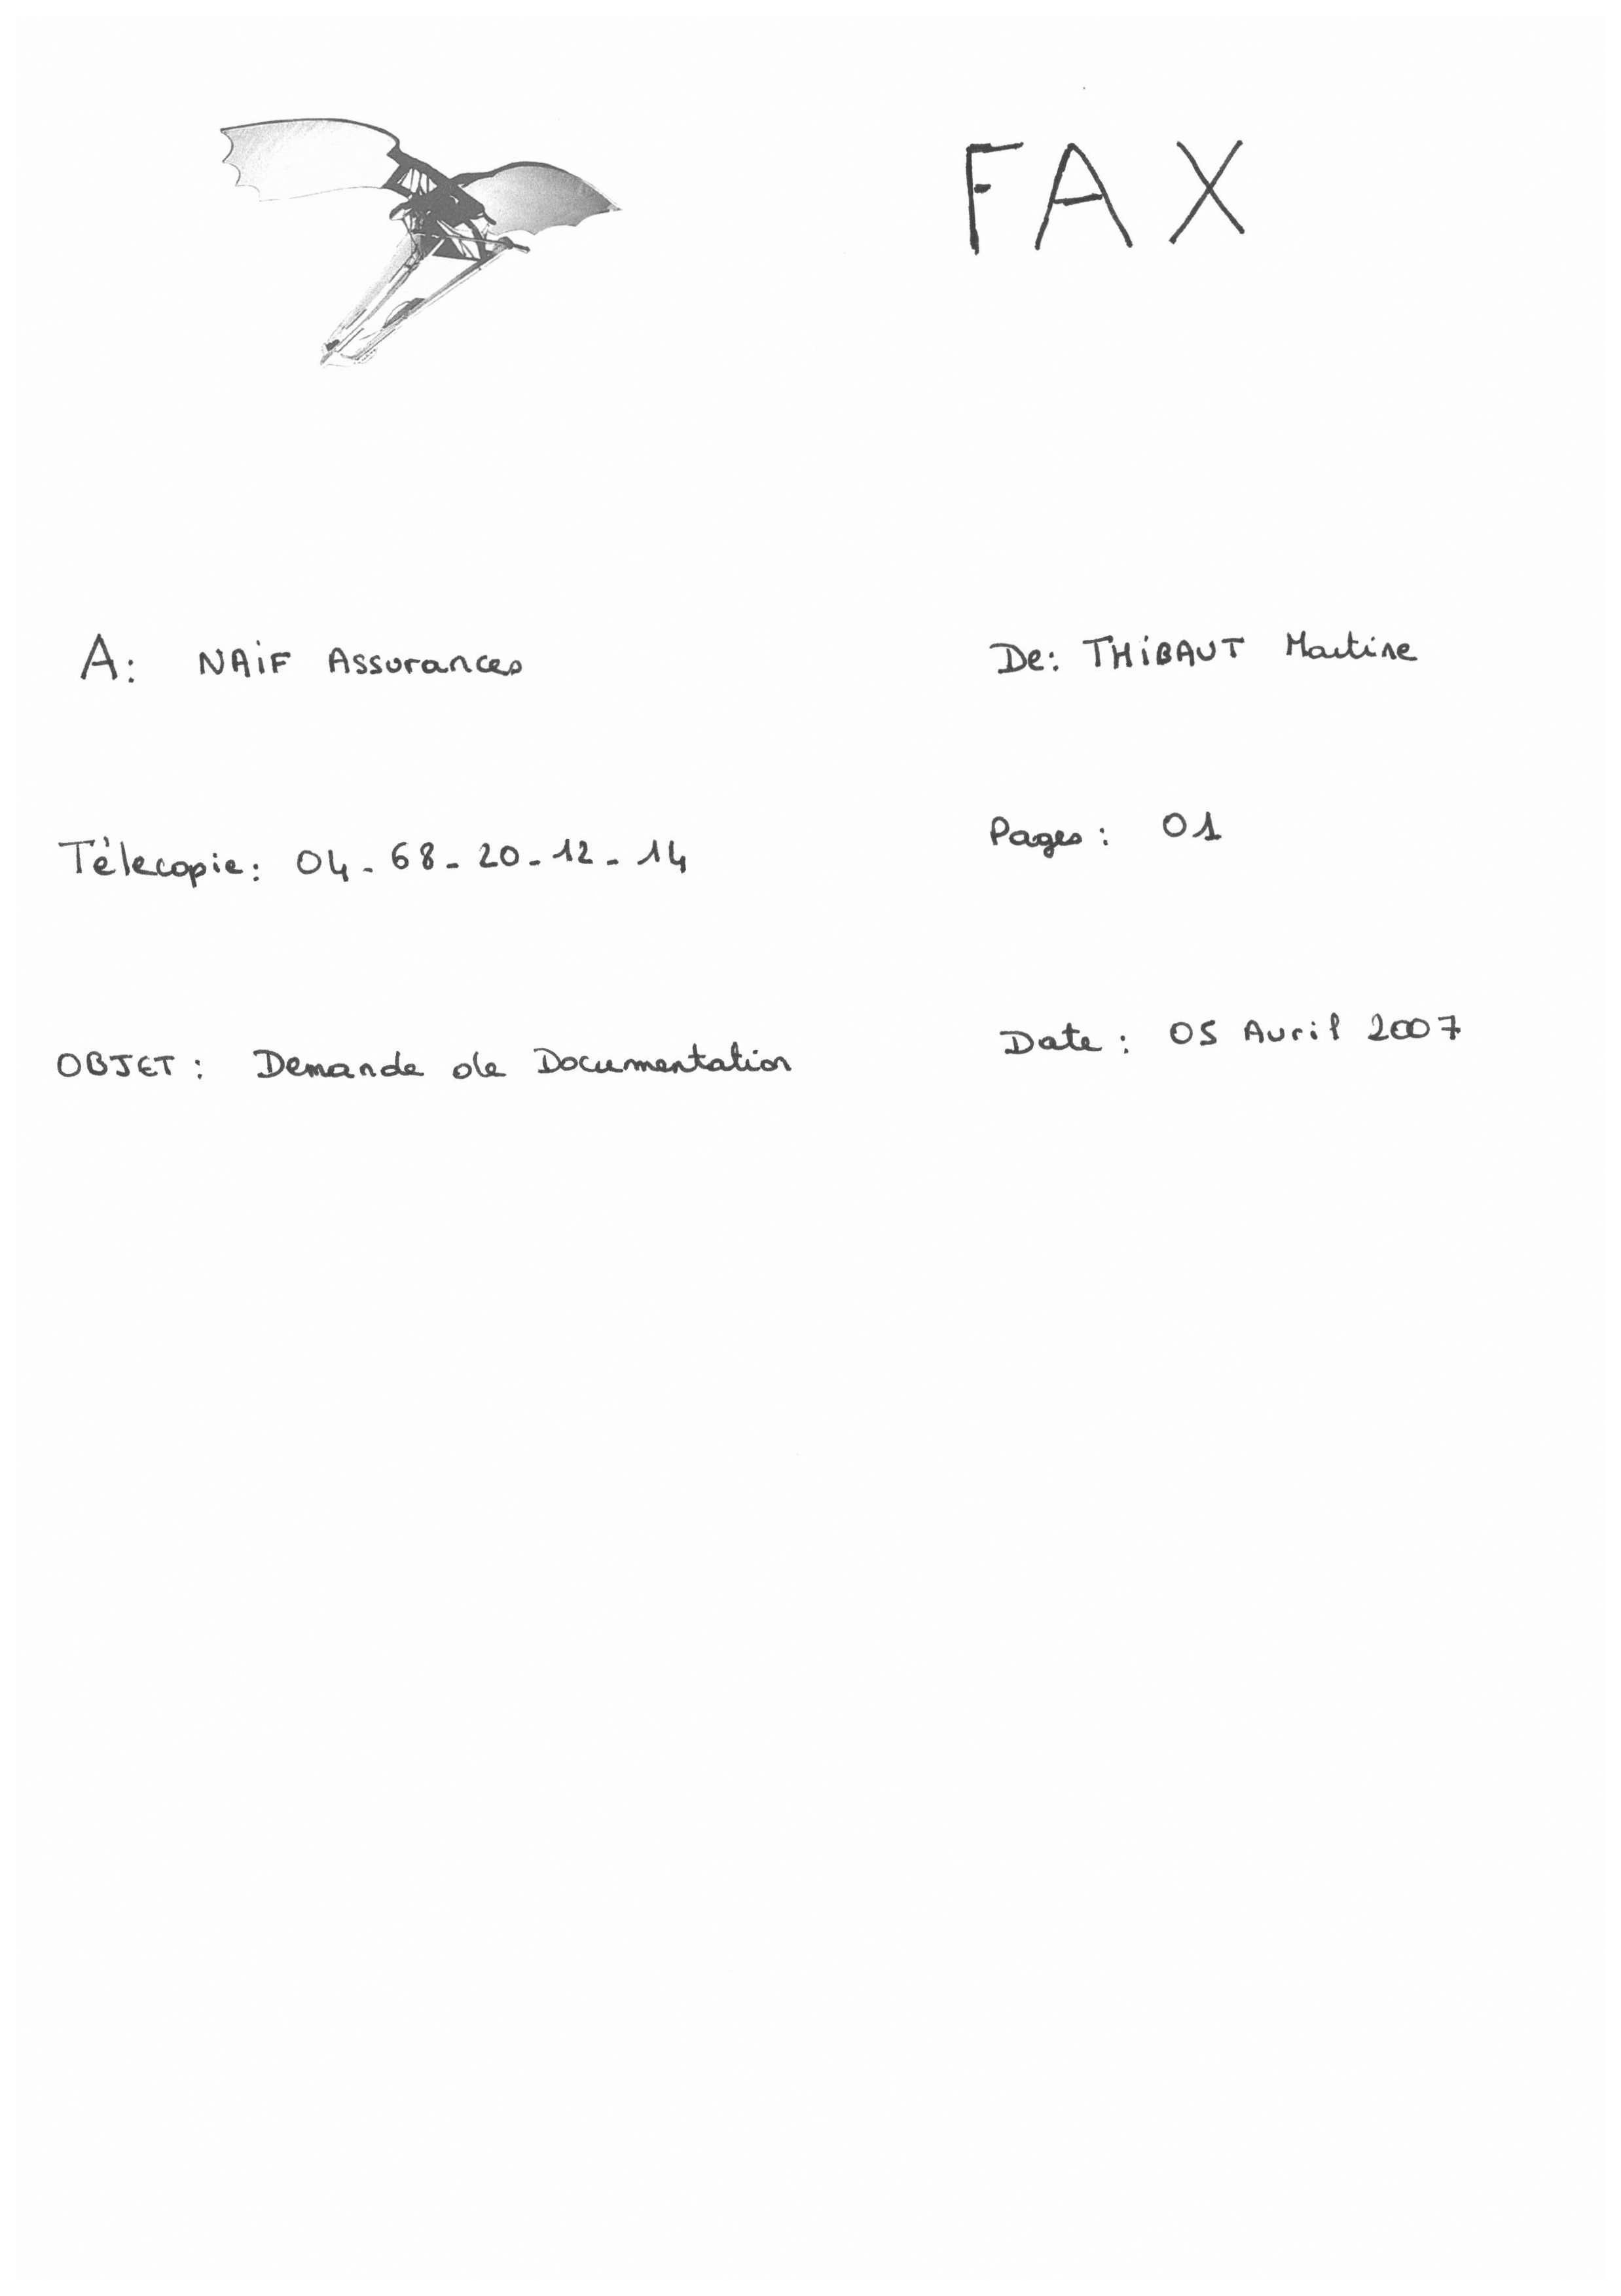 FAX
A: NAiF Assurances
De: THiBAUT Martine
Télecopie: 04-68-20-12-14
Pages: 01
OBJET: Demande de Documentation
Date: 05 Avril 2007